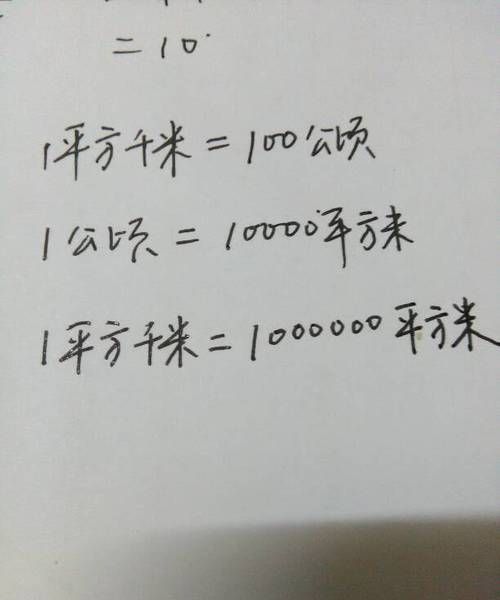 =10
1平方千米=100公顷
1公顷=10000平方米
1平方千米=1000000平方米